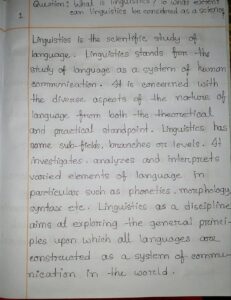 Question: What is linguistics? To what extent
1 can linguistics be considered as a science
Linguistics is the scientific study of
language. Linguistics stands for the
study of language as a system of human
communication. It is concerned with
the diverse aspects of the nature of
language from both the theoretical
and practical standpoint. Linguistics has
some sub-fields, branches or levels. It
investigates, analyzes and interprets
varied elements of language in
particular such as phonetics, morphology,
syntax etc. Linguistics as a discipline
aims at exploring the general princi-
ples upon which all languages are
constructed as a system of commu-
nication in the world.